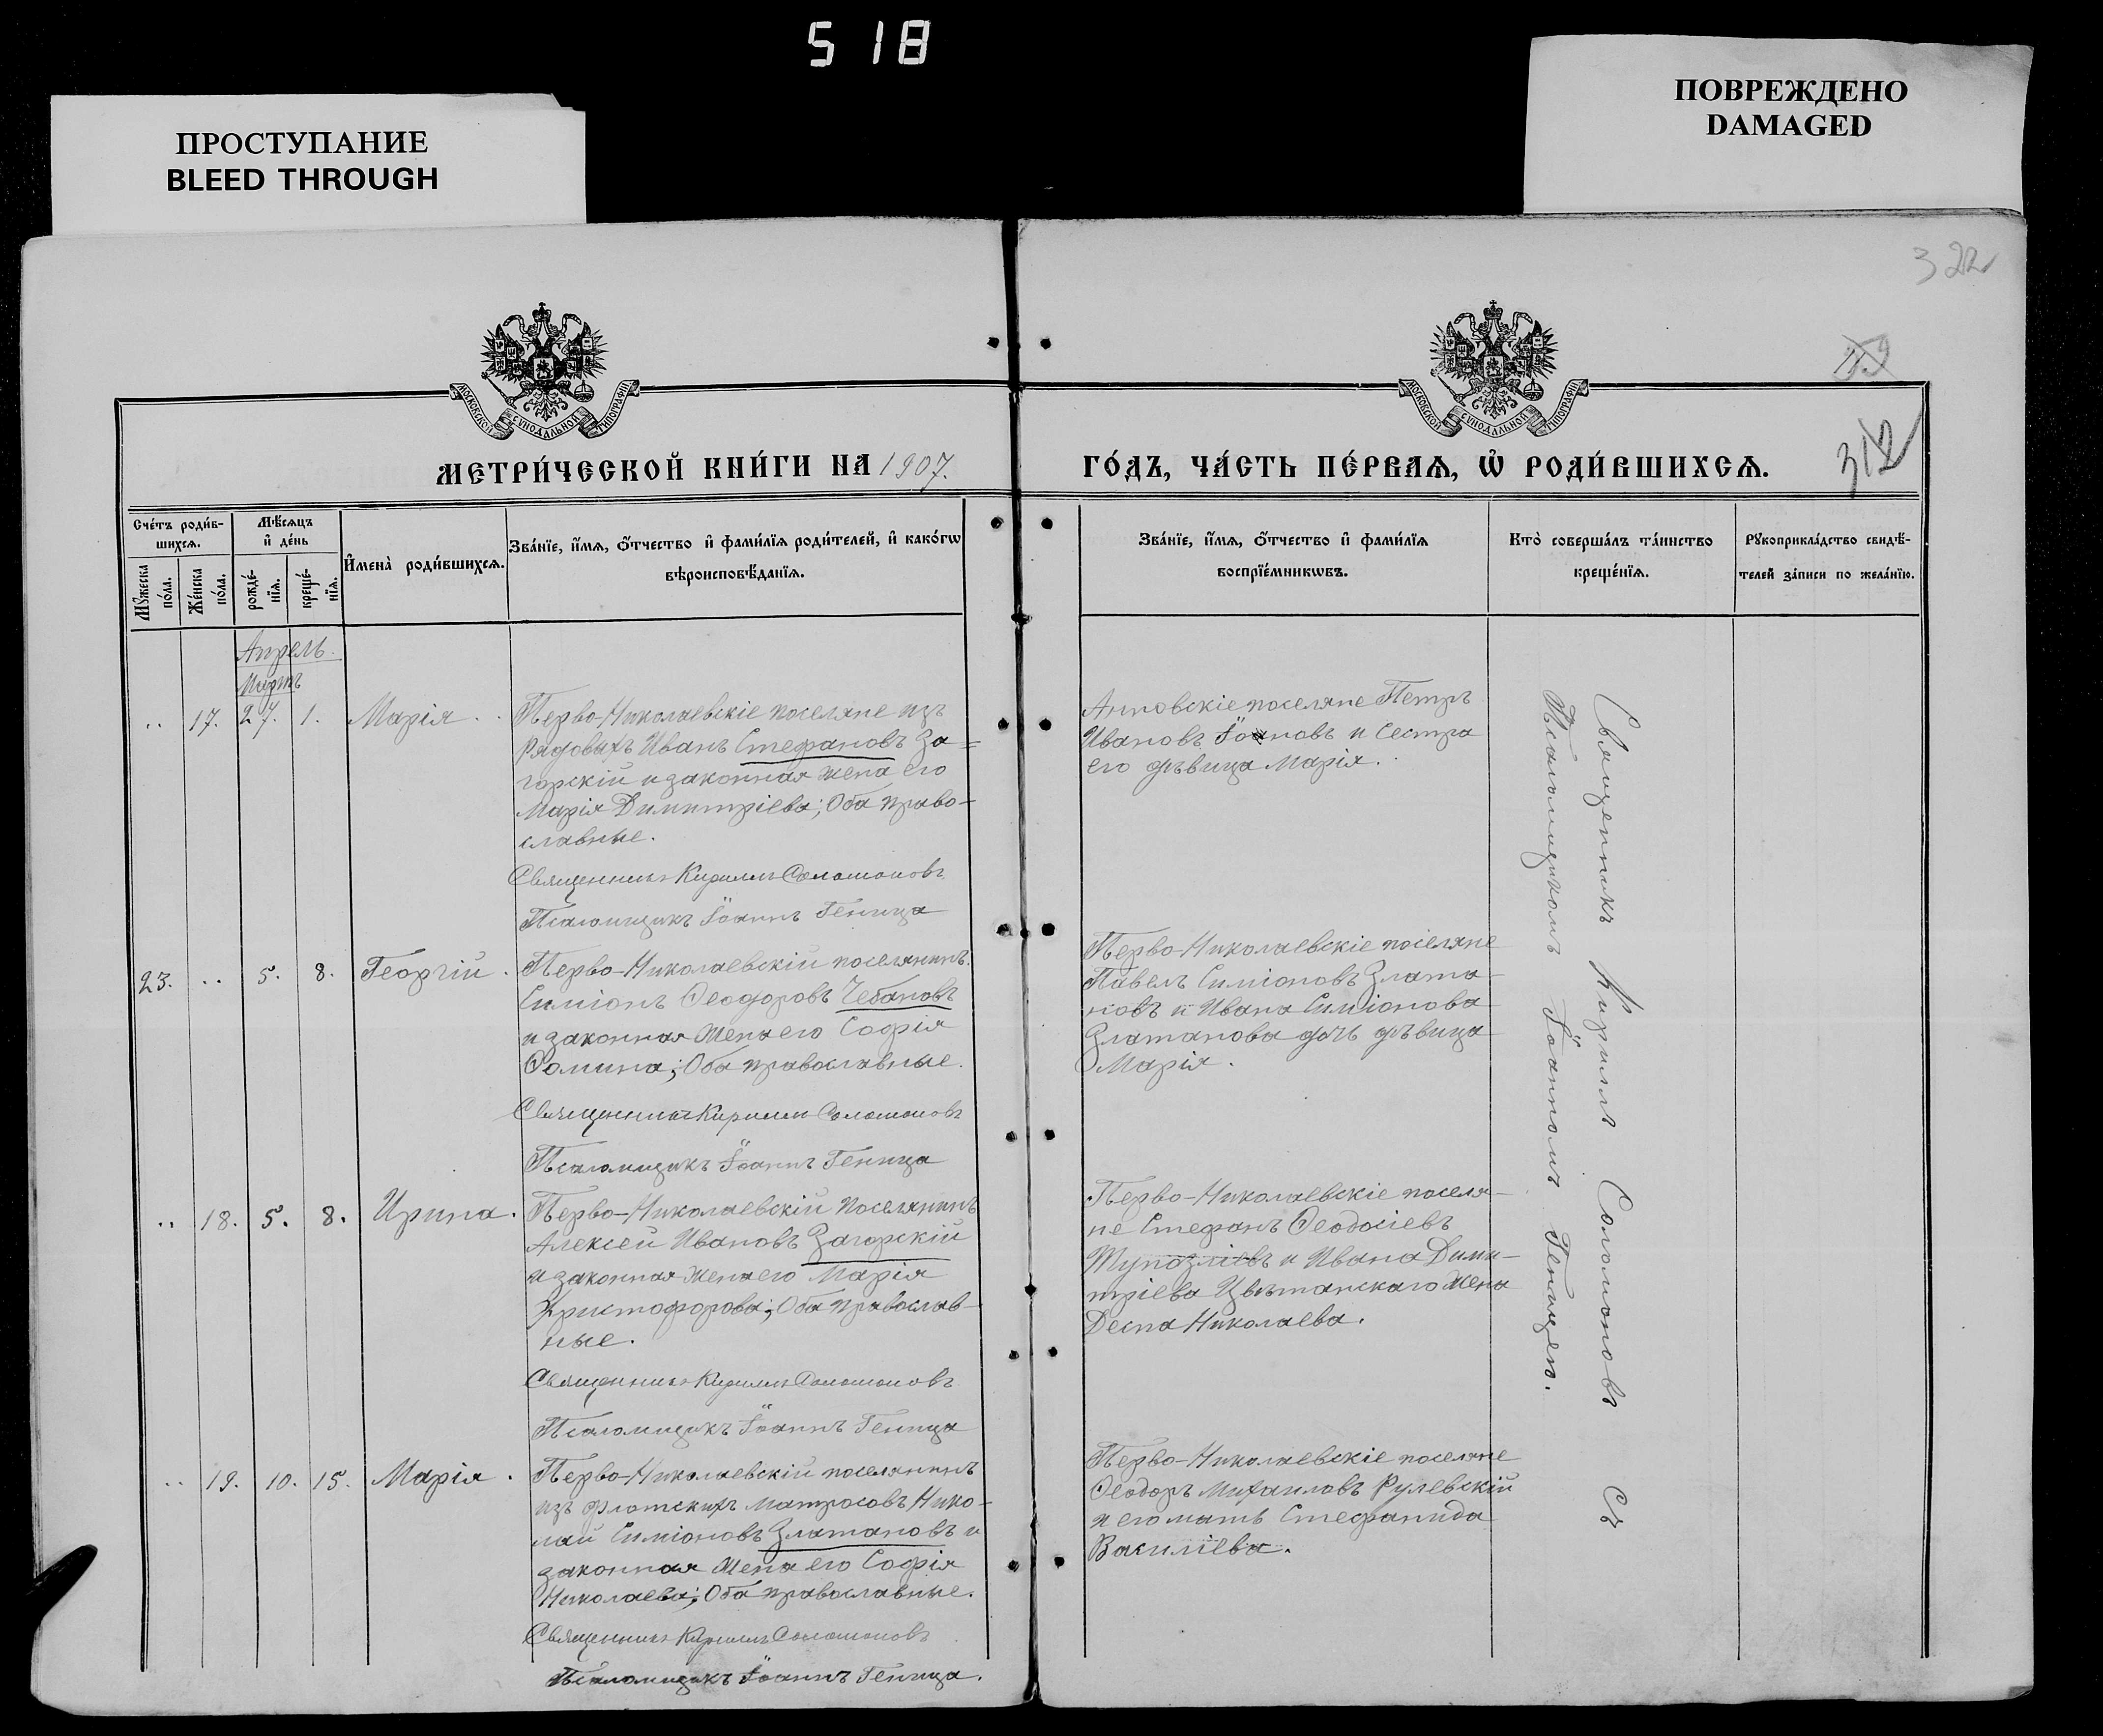 518
ПРОСТУПАНИЕ
BLEED THROUGH
ПОВРЕЖДЕНО
DAMAGED
322
312
МОСКОВСКОЙ СѴНОДАЛЬНОЙ ТИПОГРАФІИ
МОСКОВСКОЙ СѴНОДАЛЬНОЙ ТИПОГРАФІИ
МЕТРИ́ЧЕСКОЙ КНИ́ГИ НА 1907.
ГО́ДЪ, ЧА́СТЬ ПЕ́РВАѦ, Ѡ҆ РОДИ́ВШИХСѦ.
Сче́тъ роди́в-
шихсѧ.
Мѣ́сѧцъ
и҆ де́нь
Мꙋ́жеска
по́ла.
Же́нска
по́ла.
рожде́-
нїѧ.
креще́-
нїѧ.
И҆мена̀ роди́вшихсѧ.
Зва́нїе, и҆́мѧ, ѻ҆́тчество и҆ фами́лїѧ роди́телей, и҆ како́гѡ
вѣроисповѣ́данїѧ.
Зва́нїе, и҆́мѧ, ѻ҆́тчество и҆ фами́лїѧ
воспрїе́мникѡвъ.
Кто̀ соверша́лъ та́инство
креще́нїѧ.
Рꙋкоприкла́дство свидѣ́-
телей за́писи по жела́нїю.
Апрель.
Мартъ
.. 17. 27. 1. Марія..
Перво-Николаевскіе поселяне изъ
рядовыхъ Иванъ Стефановъ За=
горскій и законная жена его
Марія Димитріева; Оба право-
славные.
Священникъ Кириллъ Соломоновъ
Псаломщикъ Іоаннъ Геница
Анновскіе поселяне Петръ
Ивановъ Іоановъ и Сестра
его дѣвица Марія.
23. .. 5. 8. Георгій.
Перво-Николаевскій поселянинъ
Симіонъ Ѳеодоровъ Чебановъ
и законная жена его Софія
Ѳомина; Оба православные.
Священникъ Кириллъ Соломоновъ
Псаломщикъ Іоаннъ Геница
Перво-Николаевскіе поселяне
Павелъ Симіоновъ Злата-
новъ и Ивана Симіонова
Златанова дочь дѣвица
Марія.
.. 18. 5. 8. Ирина.
Перво-Николаевскій поселянинъ
Алексей Ивановъ Загорскій
и законная жена его Марія
Христофорова; Оба православ-
ные.
Священникъ Кириллъ Соломоновъ
Псаломщикъ Іоаннъ Геница
Перво-Николаевскіе поселя-
не Стефанъ Ѳеодосіевъ
и Ивана Дими-
тріева Цвѣтанскаго жена
Деспа Николаева.
.. 19. 10. 15. Марія.
Перво-Николаевскій поселянинъ
изъ флотскихъ матросовъ Нико-
лай Симіоновъ Златановъ и
законная жена его Софія
Николаева; Оба православные.
Священникъ Кириллъ Соломоновъ
Псаломщикъ Іоаннъ Геница.
Перво-Николаевскіе поселяне
Ѳеодоръ Михаиловъ Рулевскій
и его мать Стефанида
Василіева.
Священникъ Кириллъ Соломоновъ съ
Псаломщикомъ Іоанномъ Геницею.